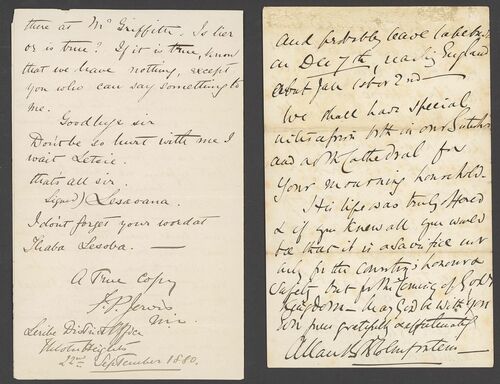 there at Mrs Griffith. Is lier
or is true? If it is true, know
that we have nothing, except
you who can say something to
me.
Goodbye sir
Dont be so hurt with me I
wait Letsie.
thats all sir.
Signd) Lesaoana.
I don't forget your word at
Thaba Lesoba. —
A True Copy
Leribe District Office
Heights
22nd September 1880.
and probably leave
on Dec 7th, England
about Jan 1st or 2nd —
We shall have special
both in our
and Cathedral for
Your mourning household.
His life was truly offered
& if you knew all you would
see that it is a sacrifice not
only for the Country's honour &
safety but for the coming of God's
Kingdom — May God be with you